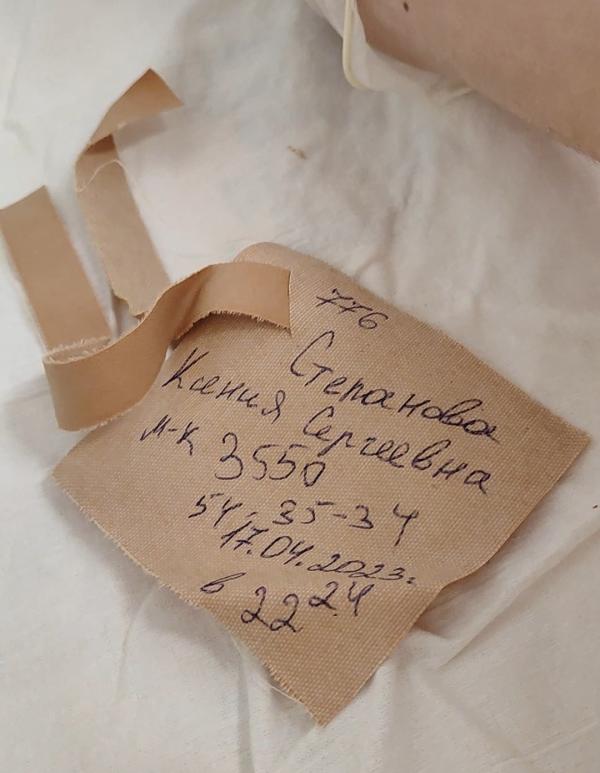 776
Степанова
Ксения Сергеевна
м-к 3550
54-35-34
17.04.2023г.
в 22 24